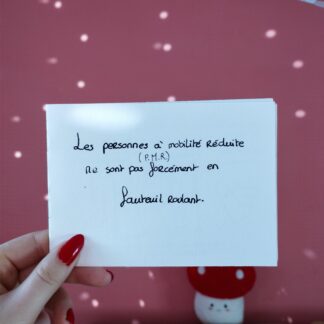 Les personnes à mobilité réduite
(P.M.R)
ne sont pas forcément en
fauteuil roulant.